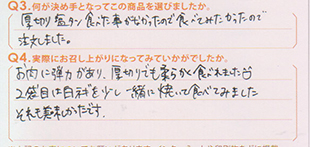 Q3.何が決め手となってこの商品を選びましたか。
厚切り塩タン食べた事がなかったので食べてみたかったので
注文しました。
Q4.実際にお召し上がりになってみていかがでしたか。
お肉に弾力があり、厚切りでも柔らかく食べれました
2袋目は白ネギを少し一緒に焼いて食べてみました
それも美味しかったです。